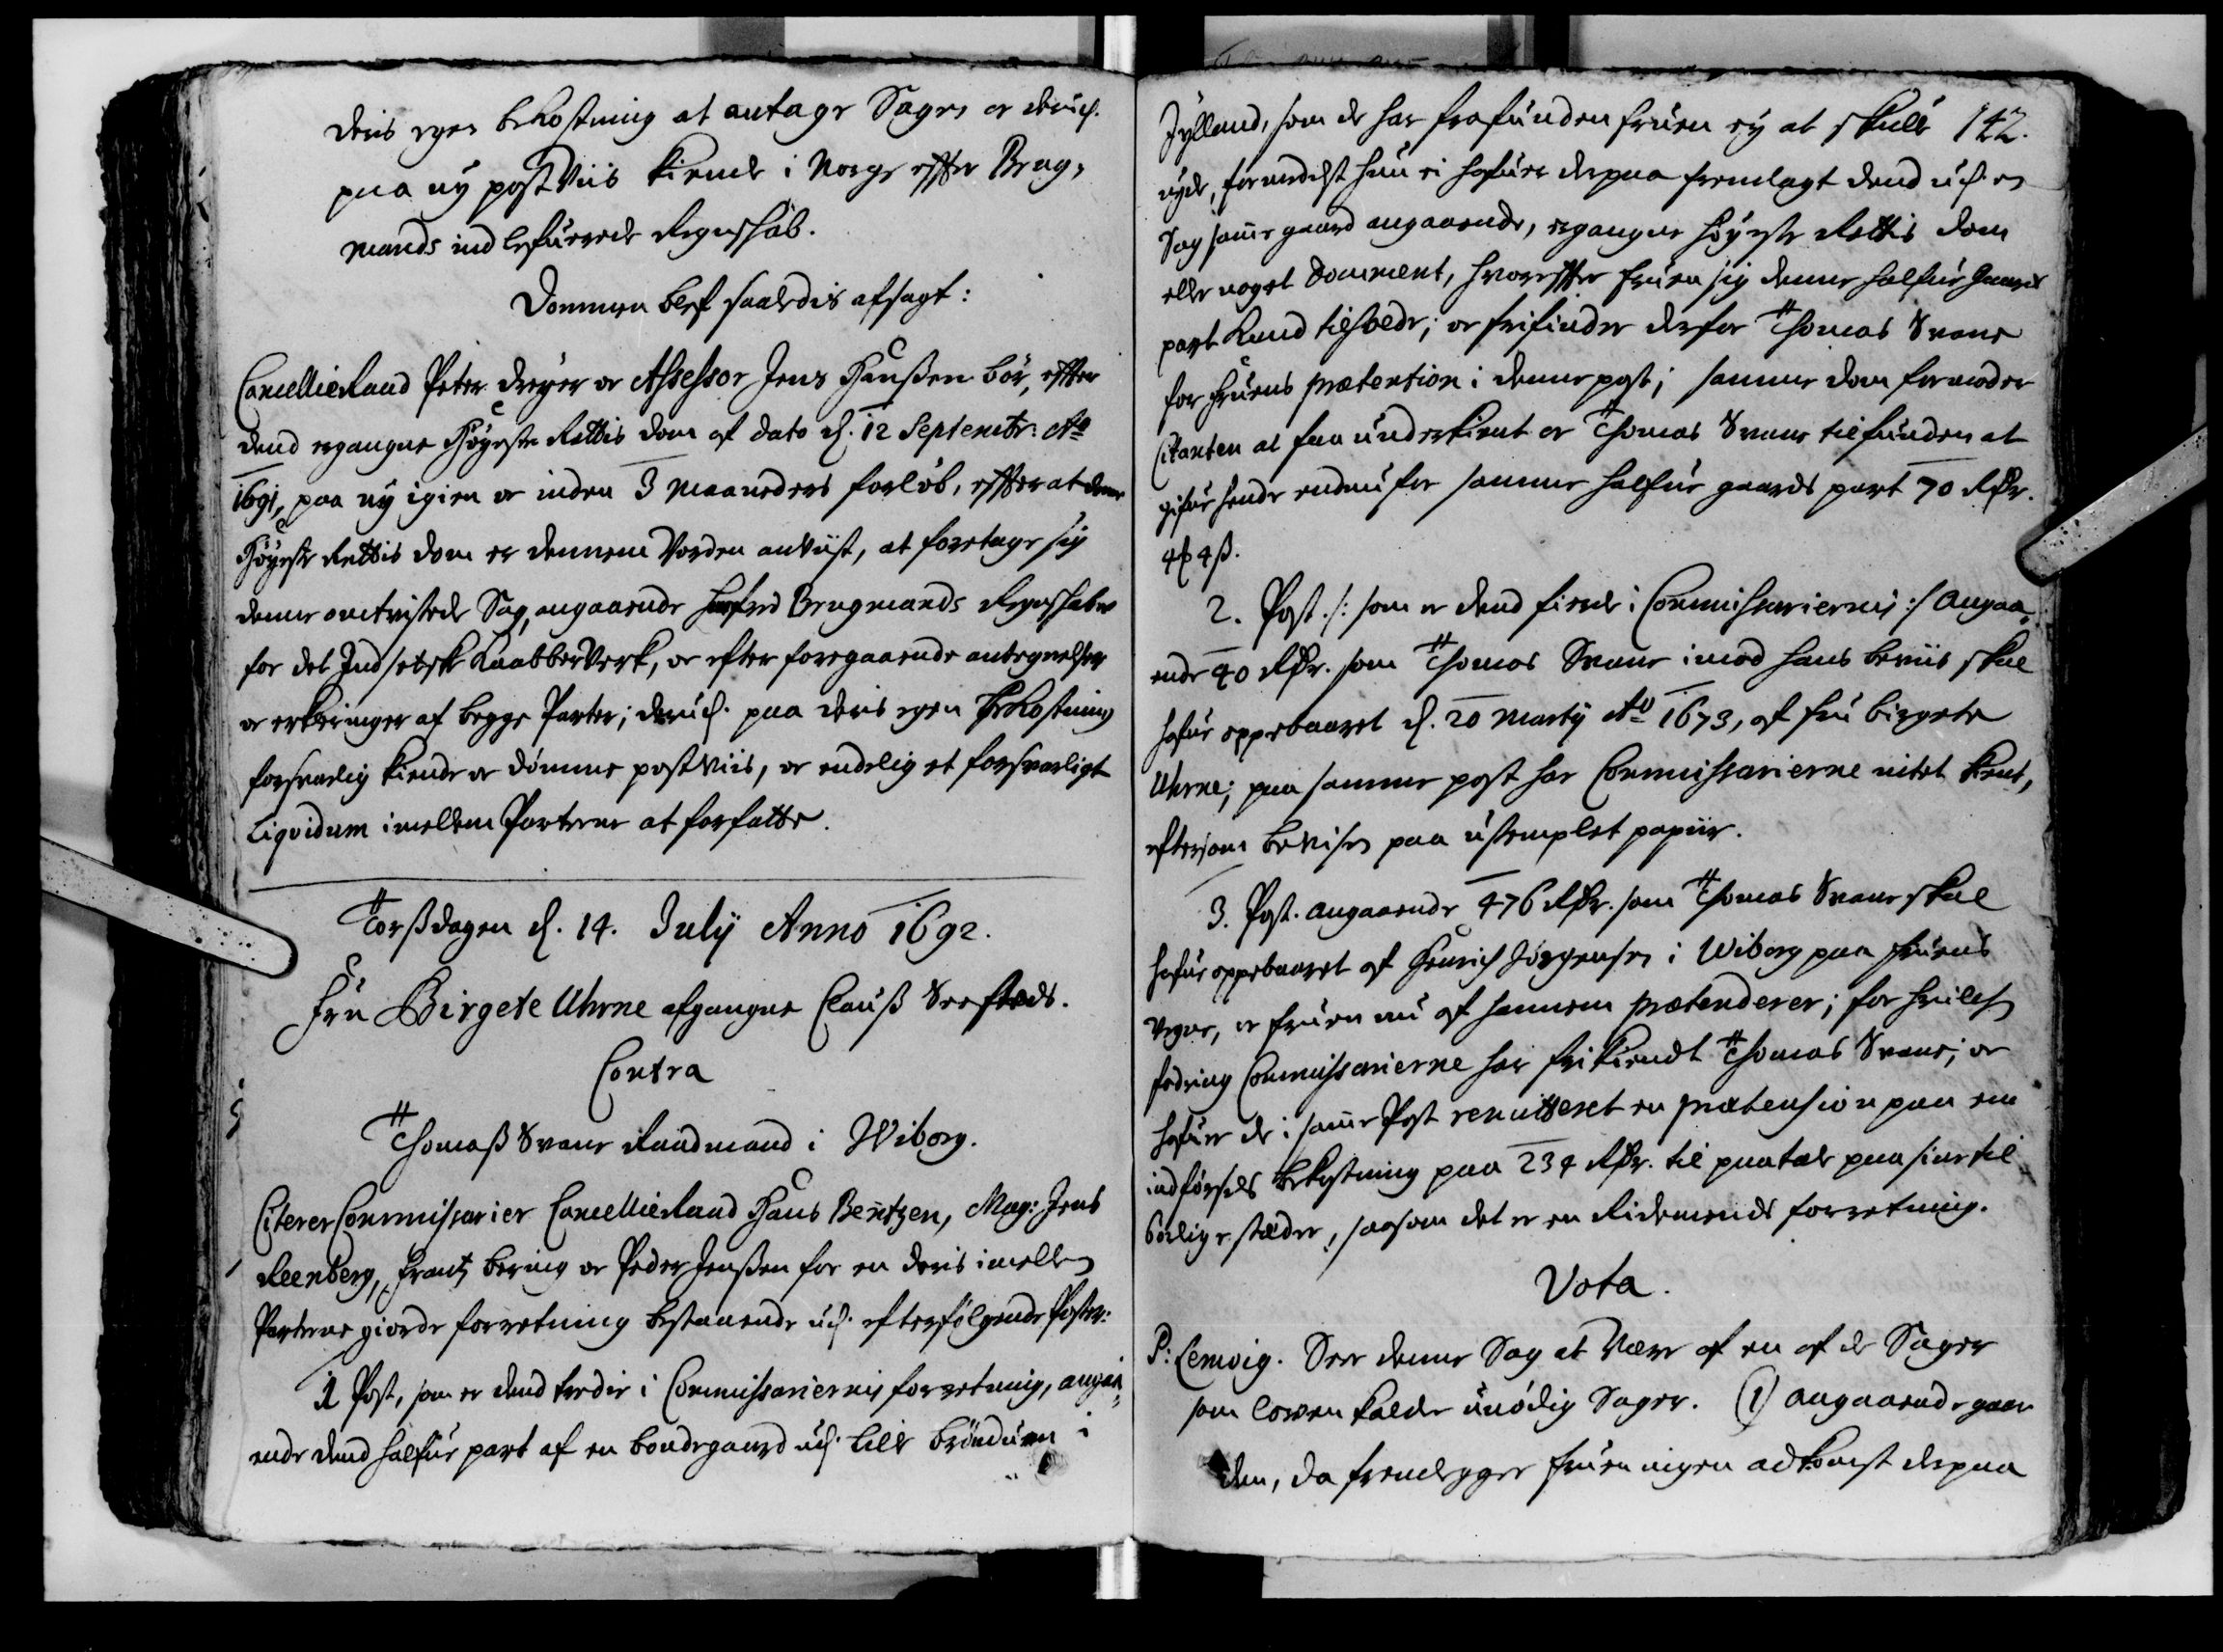 deris egen bekostning at antage Sagen oc deruд.
paa ny post Viis kiende i Norge effter Brug-
mands indlefuerede Regenskab.
Dommen blef saaledis afsagt:
CancellieRaad Peter Dreyer oc Assessor Jens Hanßen bör, effter
dend ergangne Höyeste Rettis dom af dato d. 12 Septembr: Ao
1691, paa ny igien oc inden 3 Maaneders forlöb, effter at denne
Höyeste Rettis dom er dennem Vorden anviist, at foretage sig
denne omtvistede Sag, angaaende Brugmands Regenskaber
for det Indsetske KaabberVerk, oc efter foregaaende antegnelser
oc erklæringer af begge Parter; paa deris egen Bekostning
forsvarlig kiende oc dömme postviis, oc endelig et forsvarligt
Liqvidum imellem Parterne at forfatte.
Torßdagen d. 14. July Anno 1692.
Fru Birgete Uhrne afgangne Clauß Seesteds.
Contra
Thomaß Svane Raadmand i Wiborg.
Citerer Commissarier CancellieRaad Hans Bentzen, Mag: Jens
Reenberg, Frantz Bering oc Peder Jenßen for en deris imellem
Parterne giorde forretning bestaaende udj efterfölgende Poster:
1 Post, som er dend tredie i Commissariernis forretning, angaa-
ende dend halfue part af en bondegaard udj lille Bröndum i
142.
Jylland, som de har frafunden fruen ey at skulle
nyde, formedelst hun ei hafuer derpaa fremlagt dend udj en
Sag samme gaard angaaende, ergangne höyeste Rettis dom
eller noget Document, hvoreffter fruen sig denne halfue Gaards
part Kand tilholde; oc frifinder derfor Thomas Svane
for fruens prætention i denne post; samme dom formoder
Citanten at faa underkient oc Thomas Svane tilfunden at
gifue hende endnu for samme halfue gaards part 70 Rdr.
4 4 ß.
2. Post /: som er dend fierde i Commissariernis :/ angaa-
ende 40 Rdr. som Thomas Svane imod hans beviis skal
hafue oppebaaret d. 20 Martij Ao 1673, af fru Birgete
Uhrne; paa samme post har Commissarierne intet kient,
eftersom bevisen paa ustemplet papiir.
3. Post. angaaende 476 Rdr. som Thomas Svane skal
hafue oppebaaret af Henrich Jörgensen i Wiborg paa fruens
vegne, oc fruen nu af hannem prætenderer; for hvilchen
fodring Commissarierne har frikiendt Thomas Svane; oc
hafuer de i samme Post remitteret en prætension paa en
indförsels bekostning paa 234 Rdr. til paatale paa sine til-
börlige stæder, saasom det er en Ridemends forretning.
Vota.
P: Lemvig. Seer denne Sag at være af en af de Sager
som lowen kalder unödig Sager. (1) angaaende gaar-
den, da fremlegger fruen ingen adkomst derpaa